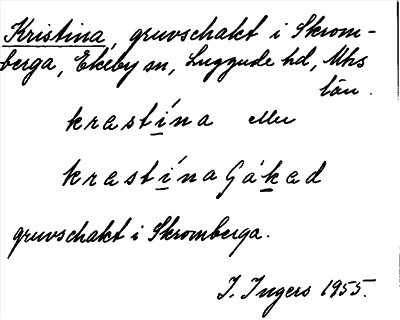 Kristina, gruvschakt i Skrom-
berga, Ekeby sn, Luggude hd, Mhs
län.
krastína eller
krastína Gáked
gruvschakt i Skromberga.
I. Ingers 1955.